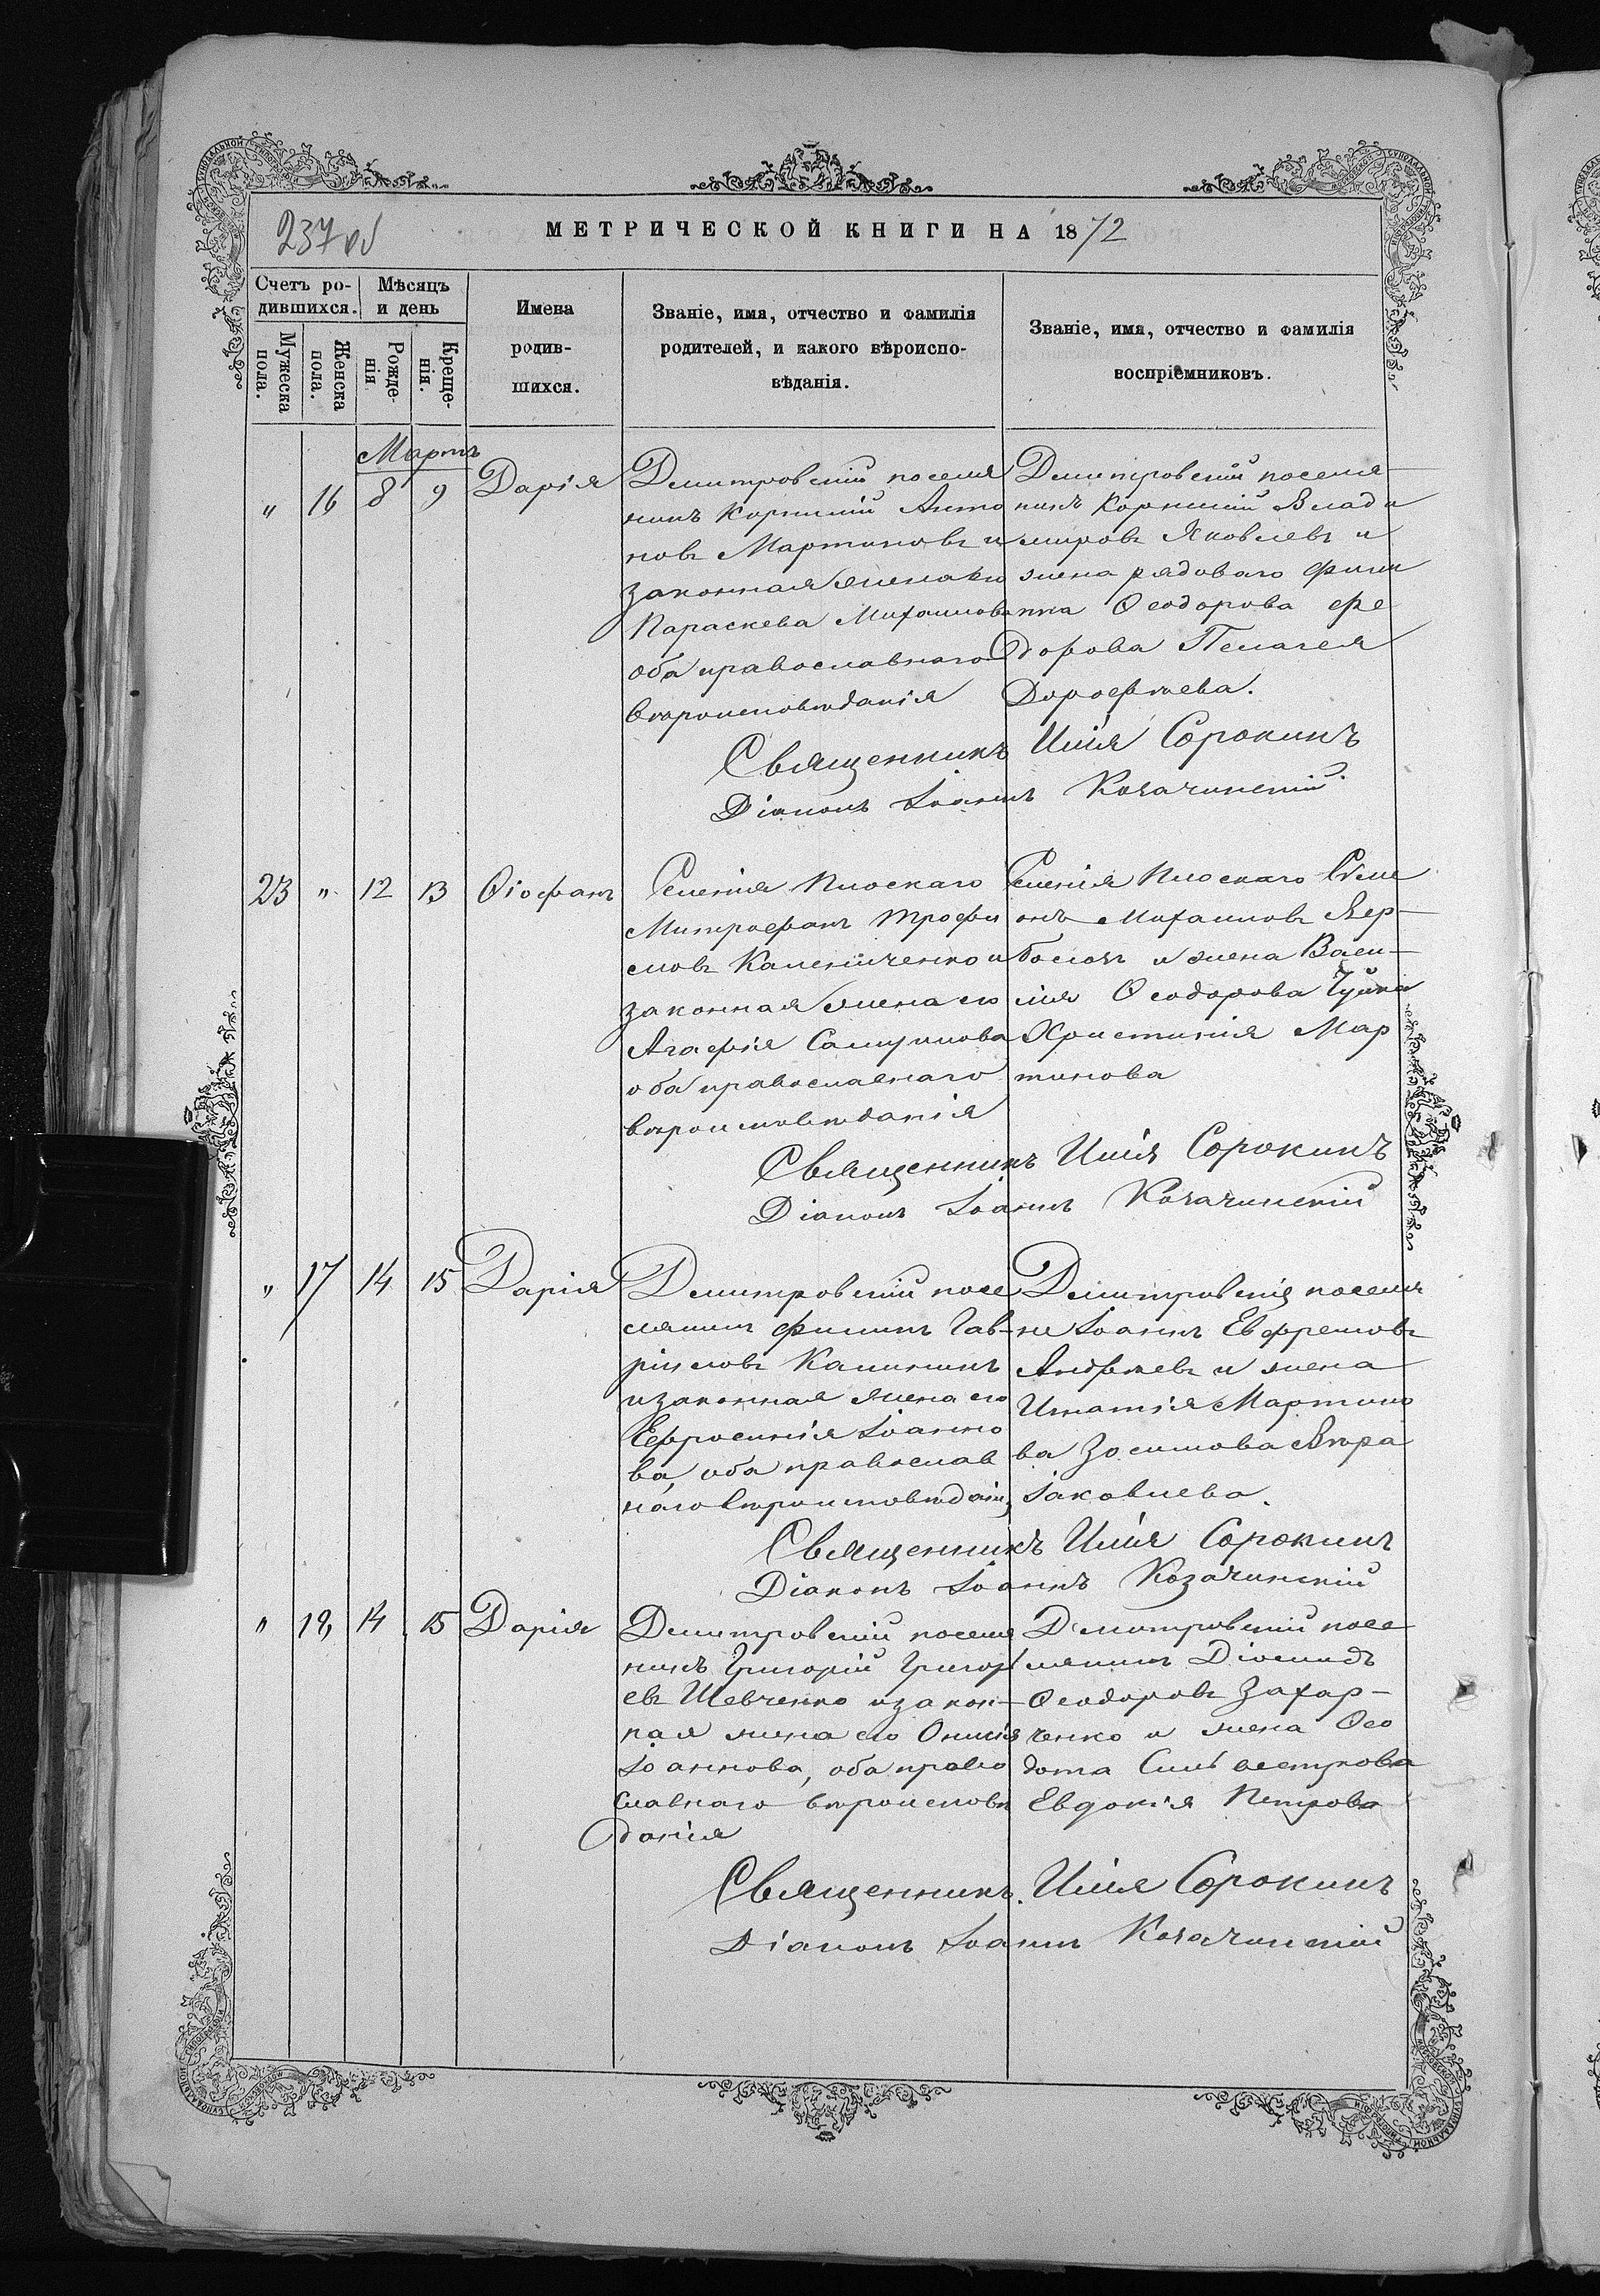 237 об
МЕТРИЧЕСКОЙ КНИГИ НА 1872
Счетъ ро-
дившихся.
Мѣсяцъ
и день
Мужеска
пола.
Женска
пола.
Рожде-
нія
Креще-
нія.
Имена
родив-
шихся.
Званіе, имя, отчество и фамилія
родителей, и какого вѣроиспо-
вѣданія.
Званіе, имя, отчество и фамилія
воспріемниковъ.
Мартъ
" 16 8 9 Дарія
Димитровскій поселя
нинъ Корнилій Анто
новъ Мартиновъ и
законная жена его
Параскева Михаилова
оба православнаго
вѣроисповѣданія
Димитровскій поселя-
нинъ Корнилій Влади
мировъ Яковлевъ и
жена рядоваго Фили
ппа Ѳеодорова Фе
дорова Пелагея
Дорофѣева.
Священникъ Илія Сорокинъ
Діаконъ Іоаннъ Козачинскій
23 " 12 13 Ѳіофанъ
Селенія Плоскаго
Митрофанъ Трофи
мовъ Калениченко и
законная жена его
Агафія Самуилова
оба православнаго
вѣроисповѣданія
Селенія Плоскаго Симе
онъ Михаиловъ Вер-
болозъ и жена Васи-
лія Ѳеодорова Чуйка
Христинія Мар
тинова
Священникъ Илія Сорокинъ
Діаконъ Іоаннъ Козачинскій
" 17 14 15 Дарія
Димитровскій посе
лянинъ Филипъ Гав-
ріиловъ Калининъ
и законная жена его
Ефросинія Іоанно
ва, оба православ
наго вѣроисповѣданія
Димитровскіе поселя
не Іоаннъ Ефремовъ
Андреевъ и жена
Игнатія Мартино
ва Зосимова Вѣра
Іаковлева.
Священникъ Илія Сорокинъ
Діаконъ Іоаннъ Козачинскій
" 18 14 15 Дарія
Димитровскій поселя
нинъ Григорій Григорь
евъ Шевченко и закон-
ная жена его
Іоаннова, оба право
славнаго вѣроисповѣ
данія
Димитровскій посе
лянинъ Діомидъ
Ѳеодоровъ Захар-
ченко и жена Ѳео
дота Сильвестрова
Евдокія Петрова
Священникъ Илія Сорокинъ
Діаконъ Іоаннъ Козачинскій